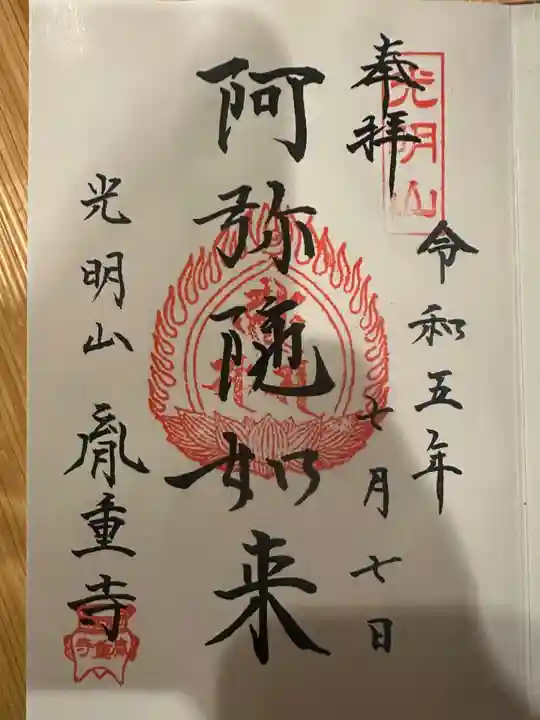 奉拝
光明山
令和五年
七月七日
阿弥随如来
光明山 胤重寺